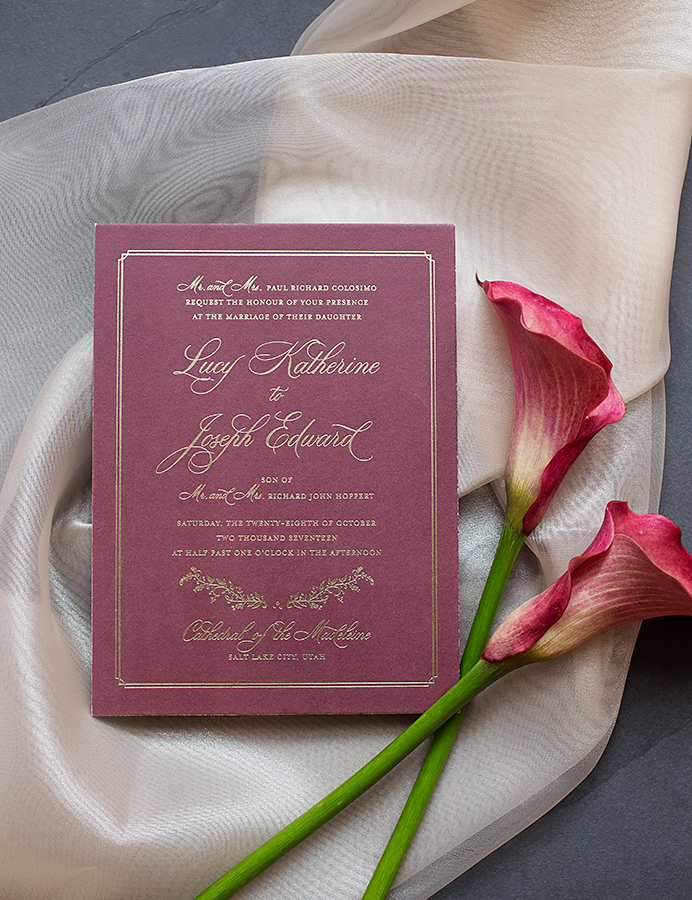 Mr. and Mrs. PAUL RICHARD COLOSIMO
REQUEST THE HONOUR OF YOUR PRESENCE
AT THE MARRIAGE OF THEIR DAUGHTER
Lucy Katherine
to
Joseph Edward
SON OF
Mr. and Mrs. RICHARD JOHN HOPPERT
SATURDAY, THE TWENTY-EIGHTH OF OCTOBER
TWO THOUSAND SEVENTEEN
AT HALF PAST ONE O'CLOCK IN THE AFTERNOON
Cathedral of the Madeleine
SALT LAKE CITY, UTAH